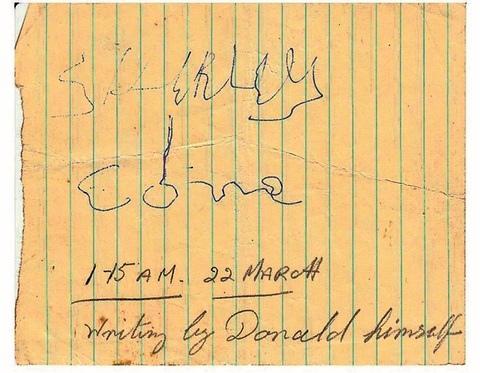 SHERLEY
Come
1-15 AM. 22 MARCH
Writing by Donald himself